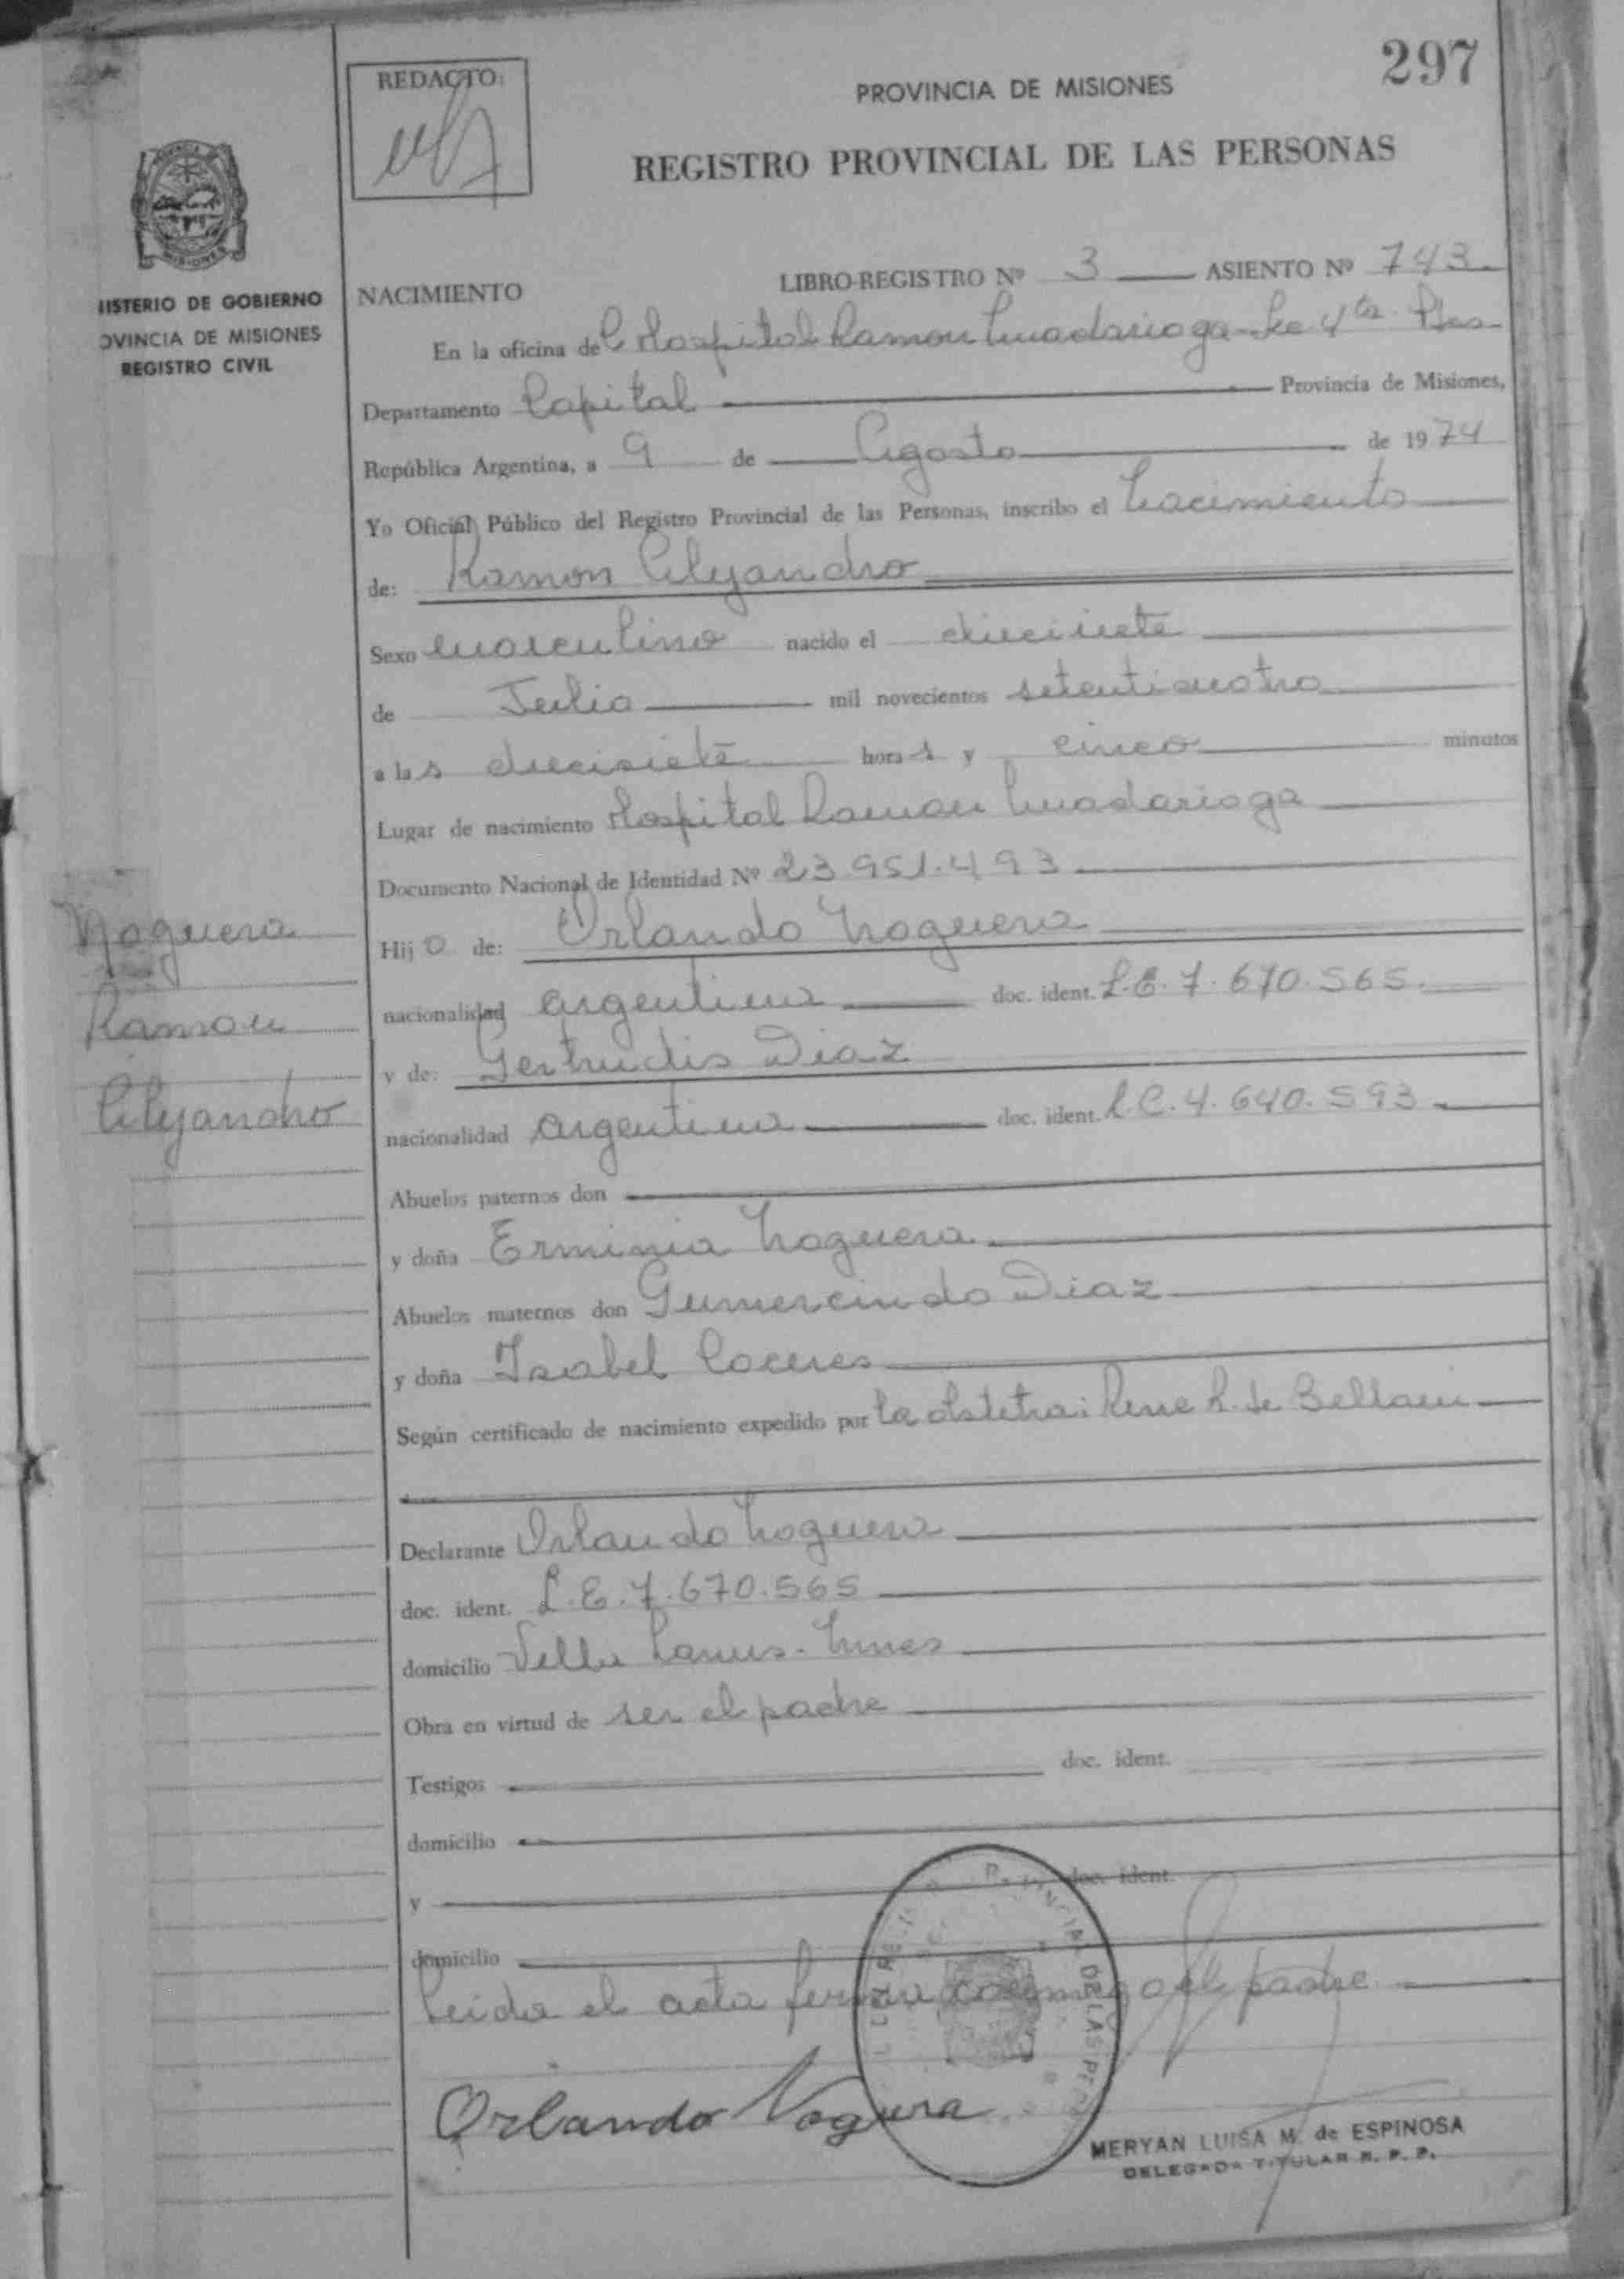 297
REDACTO:
PROVINCIA DE MISIONES
REGISTRO PROVINCIAL DE LAS PERSONAS
MISIONES
NISTERIO DE GOBIERNO
OVINCIA DE MISIONES
REGISTRO CIVIL
NACIMIENTO
LIBRO-REGISTRO Nº 3 ASIENTO Nº 743
En la oficina de Hospital Ramon Madariaga 4ta.
Departamento Capital Provincia de Misiones,
República Argentina, a 9 de Agosto de 1974
Yo Oficial Público del Registro Provincial de las Personas, inscribo el Nacimiento
de: Ramon Alejandro
Sexo masculino nacido el diecisiete
de Julio mil novecientos setenticuatro
a las diecisiete horas y cinco minutos
Lugar de nacimiento Hospital Ramon Madariaga
Documento Nacional de Identidad Nº 23.951.493
Noguera
Ramon
Alejandro
Hijo de: Orlando Noguera
nacionalidad argentina doc. ident. L.E. 7.670.565
y de: Gertrudis Diaz
nacionalidad argentina doc. ident. L.C. 4.640.593
Abuelos paternos don
y doña Erminia Noguera
Abuelos maternos don Gumercindo Diaz
y doña Isabel Caceres
Según certificado de nacimiento expedido por la obstetra: Rene R. de
Declarante Orlando Noguera
doc. ident. L.E. 7.670.565
domicilio Villa Lanus - Mnes
Obra en virtud de ser el padre
Testigos doc. ident.
domicilio
y doc. ident.
domicilio
Leida el acta firma conmigo el padre
Orlando Nogura
MERYAN LUISA M. de ESPINOSA
DELEGADA TITULAR R. P. P.